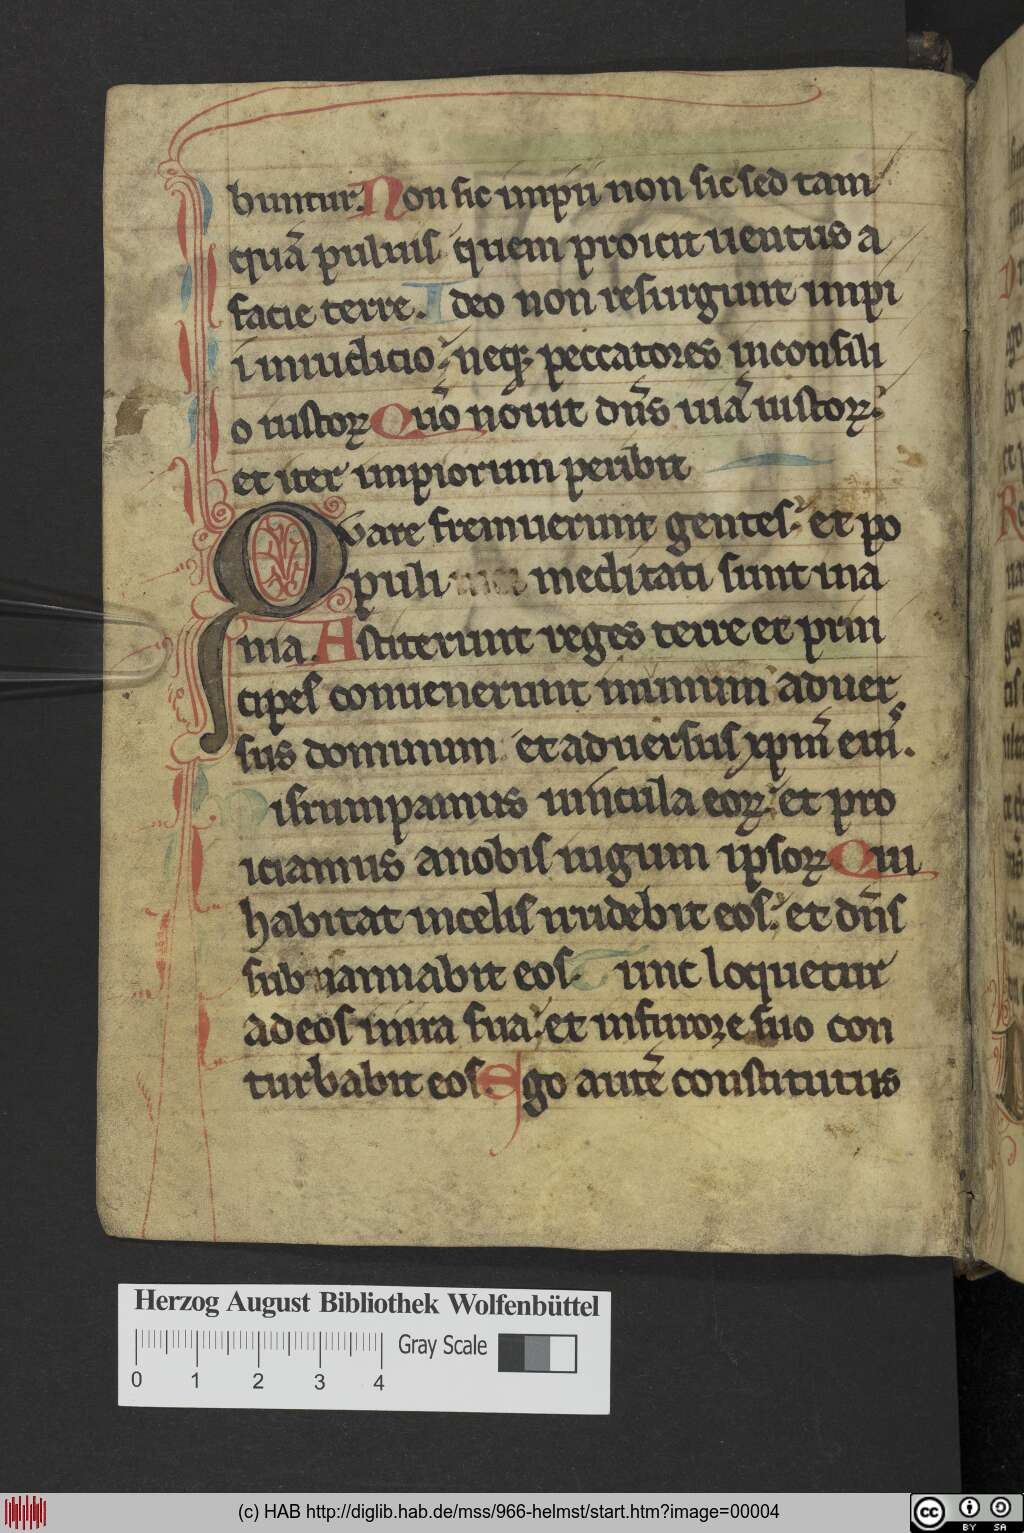 buntur. Non sic impii non sic sed tam
quā puluis quem proicit uentus a
facie terre. Ideo non resurgunt impi
i iniudicio: neqꝫ peccatores inconsili
o iustoꝝ Qūo nouit dn̄s uiā iustoꝝ:
et iter impiorum peribit
Qvare fremuerunt gentes: et po
puli meditati sunt ina
nia. Astiterunt reges terre et prin
cipes conuenerunt inunum aduer
sus dominum et aduersus xpm̄ eiuꝰ.
Disrumpamus uincula eoꝝ: et pro
iciamus anobis iugum ipsoꝝ Qui
habitat incelis irridebit eos: et dn̄s
subsannabit eos. Tunc loquetur
adeos inira sua: et infurore suo con
turbabit eos. Ego autē constitutus
Herzog August Bibliothek Wolfenbüttel
Gray Scale
0 1 2 3 4
(c) HAB http://diglib.hab.de/mss/966-helmst/start.htm?image=00004
cc BY SA